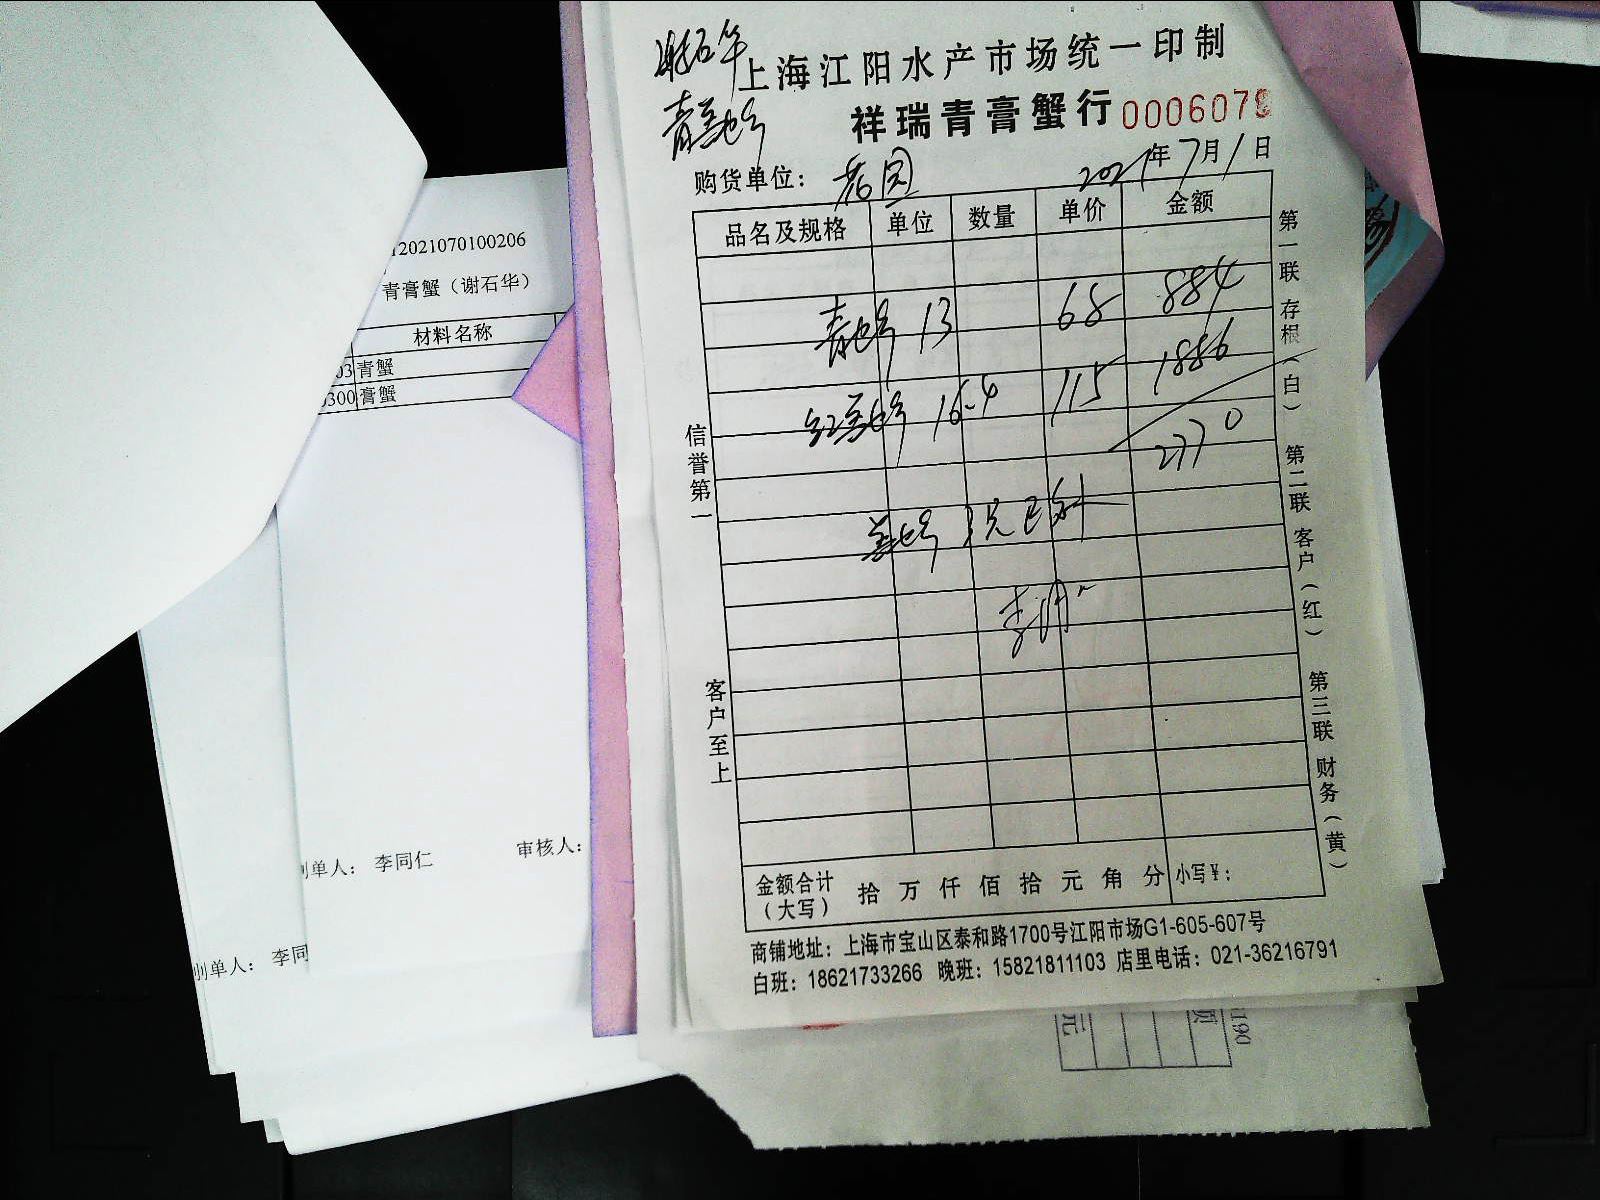 谢石华
青膏蟹
上海江阳水产市场统一印制
祥瑞青膏蟹行 000607
购货单位：
2021年7月1日
品名及规格 单位 数量 单价 金额
青蟹 13 68 884
红膏蟹 16.4 115 1886
2770
信誉第一
客户至上
第一联 存根（白） 第二联 客户（红） 第三联 财务（黄）
金额合计（大写） 拾 万 仟 佰 拾 元 角 分 小写¥：
商铺地址：上海市宝山区泰和路1700号江阳市场G1-605-607号
白班：18621733266 晚班：15821811103 店里电话：021-36216791
12021070100206
青膏蟹（谢石华）
材料名称
03 青蟹
0300 膏蟹
制单人： 李同仁
审核人：
制单人： 李同